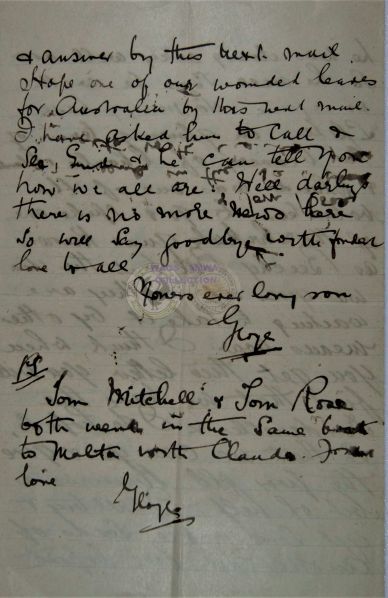 & answer by this next mail.
Hope one of our wounded leaves
for Australia by this next mail.
I have asked him to call &
see, & he can tell you
how we all are. Well darling
there is no more news here
so will say goodbye with fondest
love to all
Yours ever long son
George
PS
Tom Mitchell & Tom Rose
both went in the same boat
to Malta with Claude. Fondest
love
George
COLLECTION